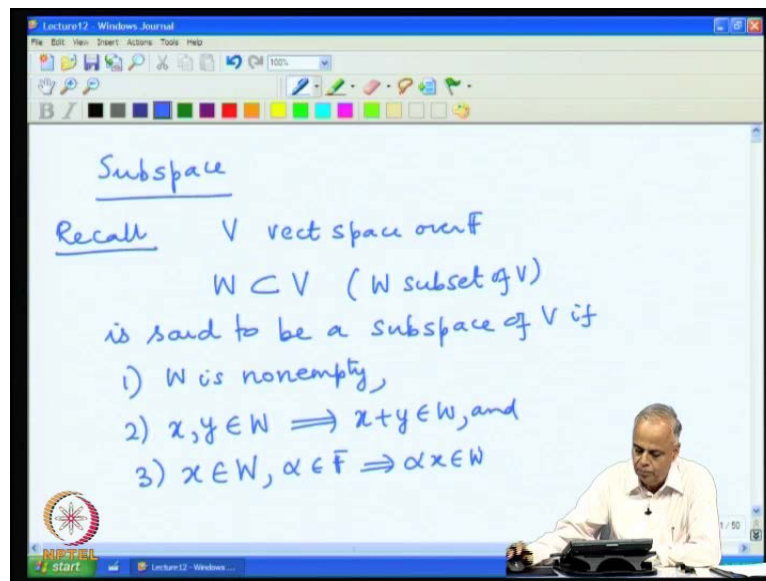 Lecture12 - Windows Journal
File Edit View Insert Actions Tools Help
100%
B I
Subspace
Recall V vect space over F
W ⊂ V (W subset of V)
is said to be a subspace of V if
1) W is nonempty,
2) x, y ∈ W ⟹ x+y ∈ W, and
3) x ∈ W, α ∈ F ⟹ αx ∈ W
1 / 50
NPTEL
start Lecture12 - Windows ...